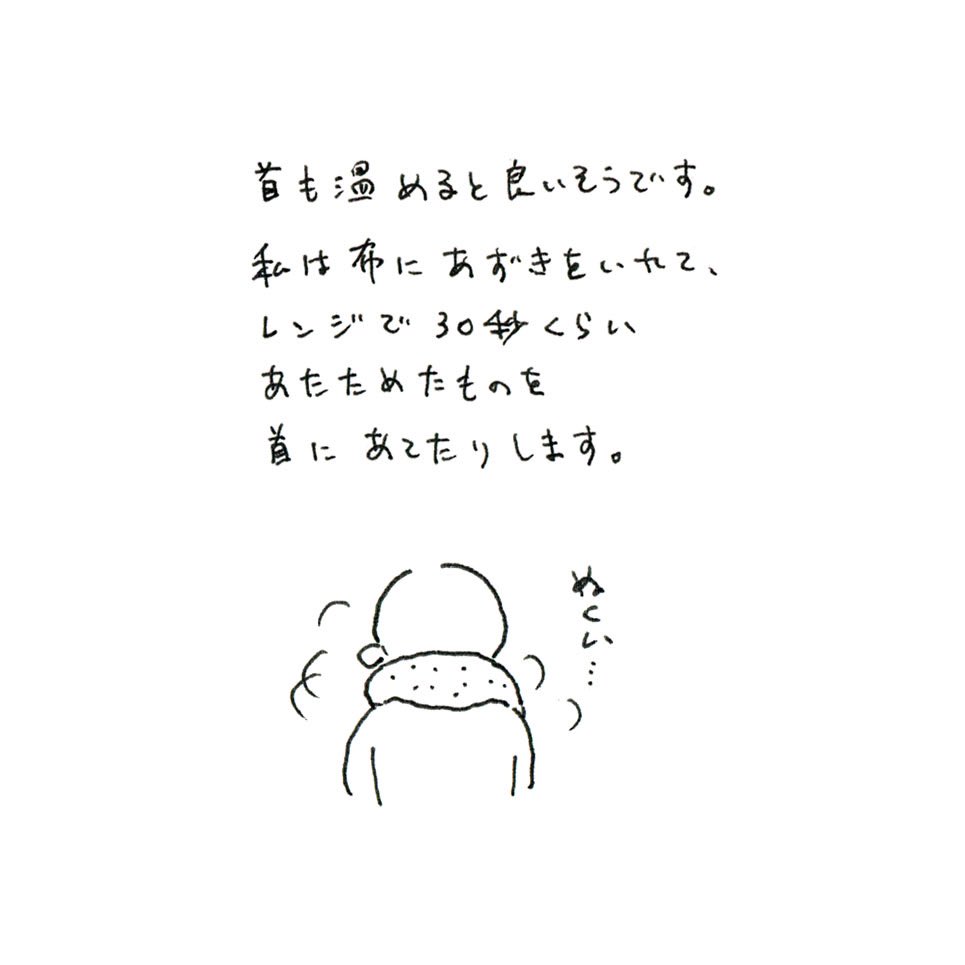 首も温めると良いそうです。
私は布にあずきをいれて、
レンジで30秒くらい
あたためたものを
首にあてたりします。
ぬくい…